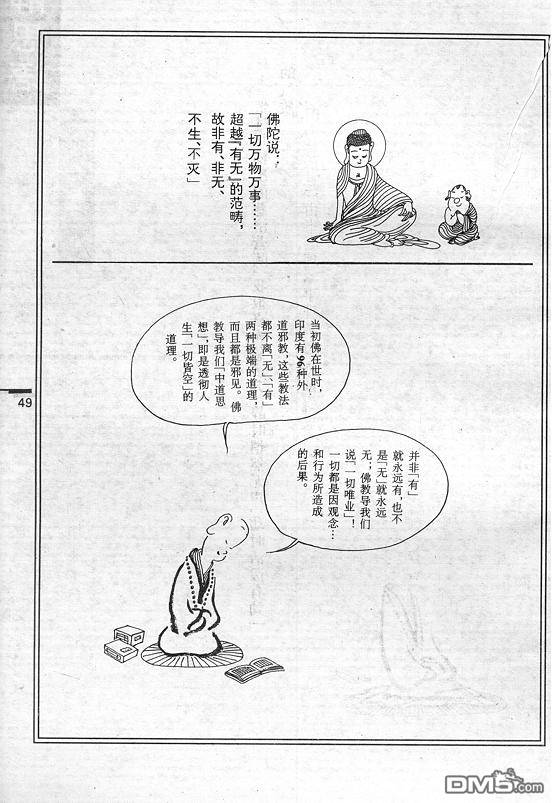 佛陀说：
「一切万物万事……
超越『有无』的范畴，
故非有、非无、
不生、不灭」
当初佛在世时，
印度有96种外
道邪教，这些教法
都不离「无」、「有」
两种极端的道理，
而且都是邪见。佛
教导我们「中道思
想」，即是透彻人
生「一切皆空」的
道理。
并非「有」
就永远有，也不
是「无」就永远
无；佛教导我们
说「一切唯业」！
一切都是因观念…
和行为所造成
的后果。
49
DM5.com